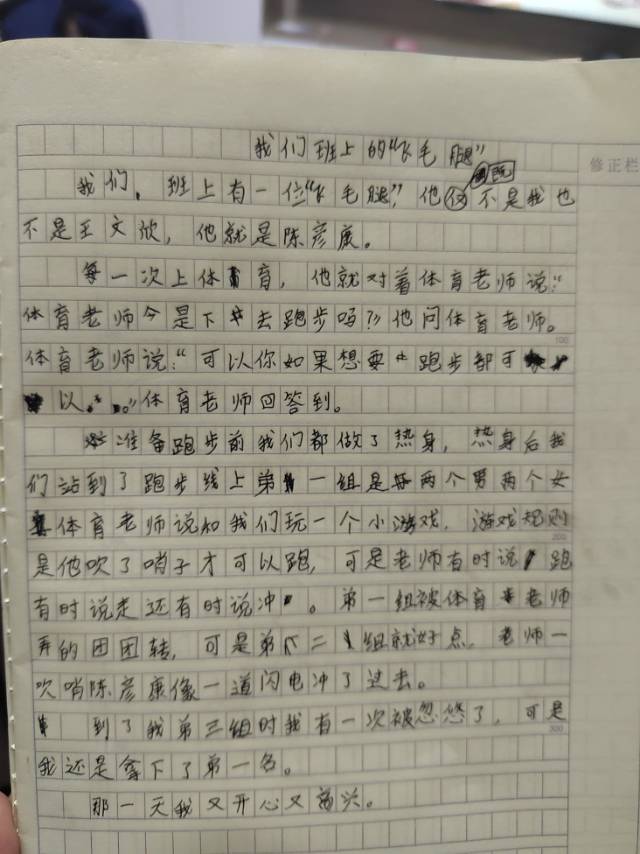 我们班上的“飞毛腿”
修正栏
我们，班上有一位“飞毛腿”，他既不是我也
不是王文欣，他就是陈彦康。
每一次上体育，他就对着体育老师说：“
体育老师今是下去跑步吗？”他问体育老师。
100
体育老师说：“可以你如果想要跑步都可
以。”体育老师回答到。
准备跑步前我们都做了热身，热身后我
们站到了跑步线上弟一组是两个男两个女
体育老师说和我们玩一个小游戏，游戏规则
200
是他吹了哨子才可以跑，可是老师有时说跑
有时说走还有时说冲。弟一组被体育老师
弄的团团转，可是弟二组就好点，老师一
吹哨陈彦康像一道闪电冲了过去。
到了我弟三组时我有一次被忽悠了，可是
300
我还是拿下了弟一名。
那一天我又开心又高兴。